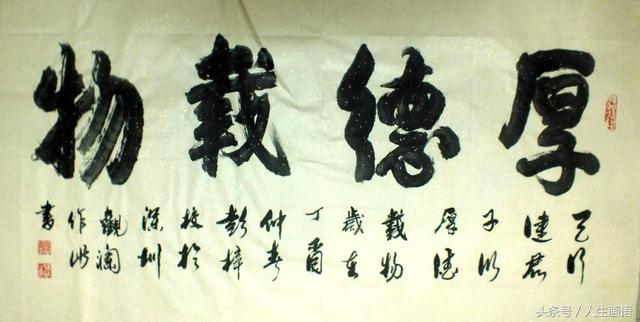 厚德載物
天行
健君
子以
厚德
載物
歲在
丁酉
仲春
彭梓
校於
深圳
觀瀾
作此
書
头条号／人生画语